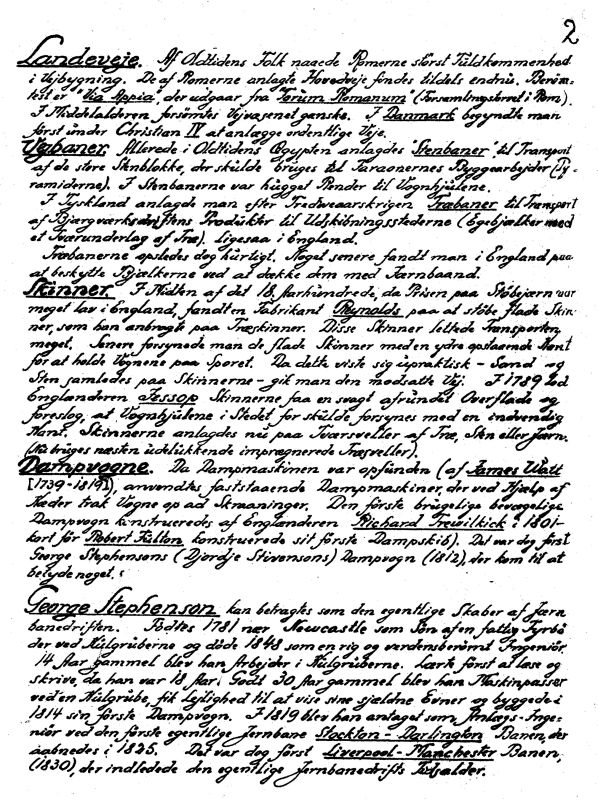 2
Landeveje. Af Oldtidens Folk naaede Romerne størst Fuldkommenhed
i Vejbygning. De af Romerne anlagte Hovedveje findes tildels endnu. Berøm-
test er "Via Appia", der udgaar fra "Forum Romanum" (Forsamlingstorvet i Rom).
I Middelalderen forsømtes Vejvæsenet ganske. I Danmark begyndte man
først under Christian IV at anlægge ordentlige Veje.
Vejbaner. Allerede i Oldtidens Ægypten anlagdes "Stenbaner" til Transport
af de store Stenblokke, der skulde bruges til Faraonernes Byggearbejder (Py-
ramiderne). I Stenbanerne var hugget Render til Vognhjulene.
I Tyskland anlagde man efter Tredveaarskrigen Træbaner til Transport
af Bjærgværksdriftens Produkter til Udskibningsstederne (Egebjælker med
et Tværunderlag af Træ). ligesaa i England.
Træbanerne opsledes dog hurtigt. Noget senere fandt man i England paa
at beskytte Bjælkerne ved at dække dem med Jærnbaand.
Skinner. I Midten af det 18. Aarhundrede, da Prisen paa Støbejærn var
meget lav i England, fandt en Fabrikant Reynolds paa at støbe flade Skin-
ner, som han anbragte paa Træskinner. Disse Skinner lettede Transporten
meget. Senere forsynede man de flade Skinner med en ydre opstaaende Kant
for at holde Vognene paa Sporet. Da dette viste sig upraktisk - Sand og
Sten samledes paa Skinnerne - gik man den modsatte Vej. I 1789 lod
Englænderen Jessop Skinnerne faa en svagt afrundet Overflade og
foreslog, at Vognhjulene i Stedet for skulde forsynes med en indvendig
Kant. Skinnerne anlagdes nu paa Tværsveller af Træ, Sten eller Jærn.
(Nu bruges næsten udelukkende imprægnerede Træsveller).
Dampvogne. Da Dampmaskinen var opfunden (af James Watt
[1739-1819]), anvendtes faststaaende Dampmaskiner, der ved Hjælp af
Kæder trak Vogne op ad Skraaninger. Den første brugelige bevægelige
Dampvogn konstrueredes af Englænderen Richard Trewilkick i 1801-
kort før Robert Fulton konstruerede sit første Dampskib). Det var dog først
George Stephensons (Djordje Stivensons) Dampvogn (1812), der kom til at
betyde noget.
George Stephenson kan betragtes som den egentlige Skaber af Jærn
banedriften. Fødtes 1781 nær Newcastle som Søn af en fattig Fyrbø
der ved Kulgruberne og døde 1848 som en rig og verdensberømt Ingeniør.
14 Aar gammel blev han Arbejder i Kulgruberne. Lærte først at læse og
skrive, da han var 18 Aar. Godt 30 Aar gammel blev han Maskinpasser
ved en Kulgrube, fik Lejlighed til at vise sine sjældne Evner og byggede i
1814 sin første Dampvogn. I 1819 blev han antaget som Anlægs-Inge-
niør ved den første egentlige Jernbane Stockton - Darlington Banen, der
aabnedes i 1825. Det var dog først Liverpool - Manchester Banen,
(1830), der indledede den egentlige Jernbanedrifts Tidsalder.